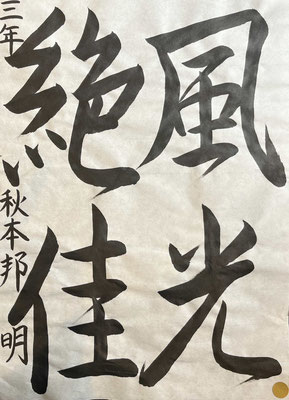 風光
絶佳
三年 秋本邦明